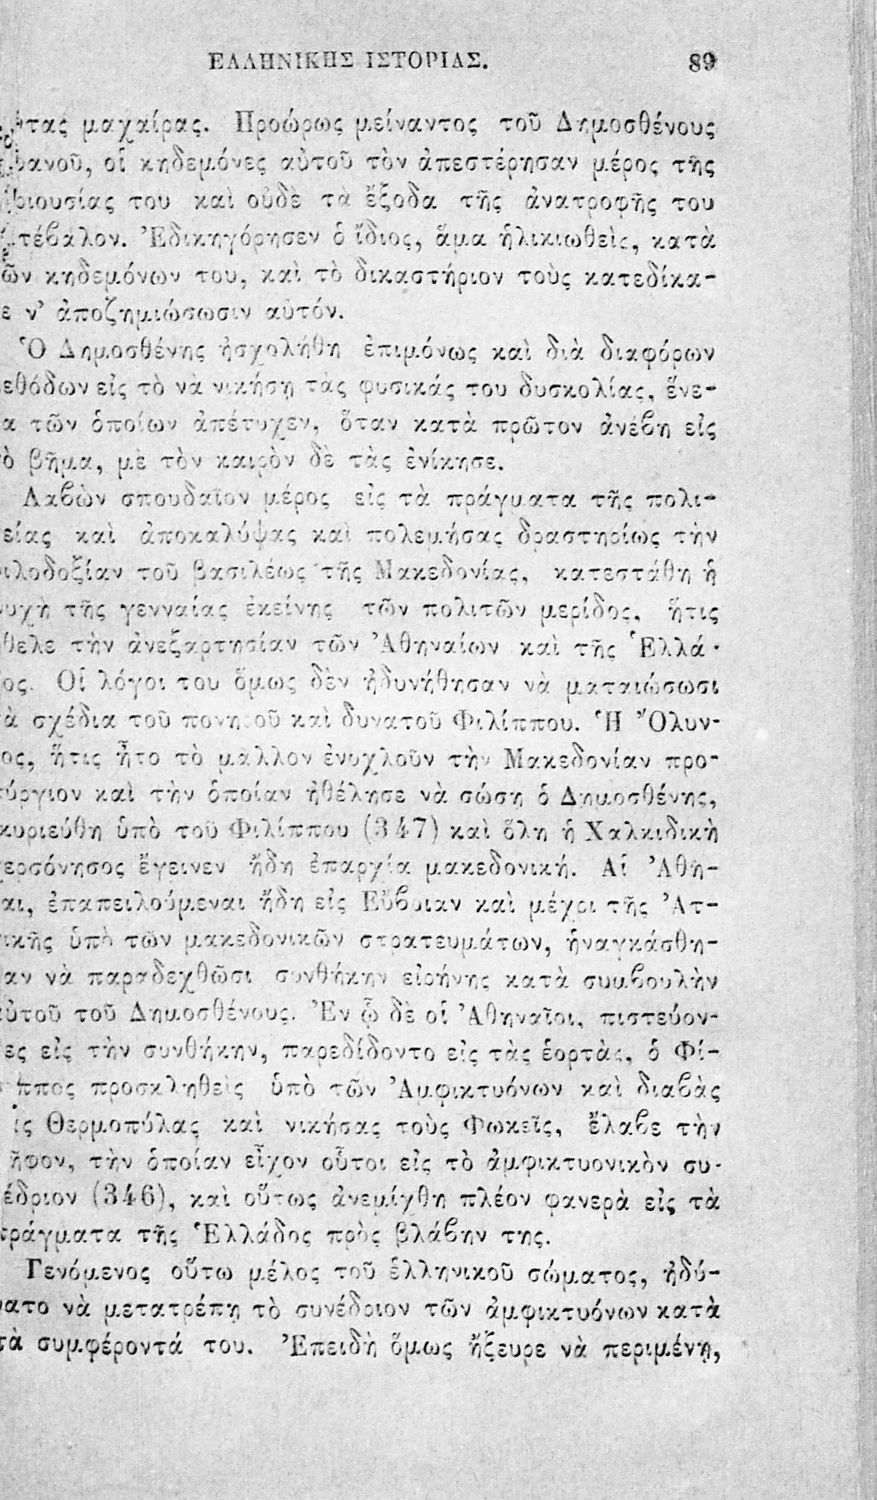 ΕΛΛΗΝΙΚΗΣ ΙΣΤΟΡΙΑΣ. 89
μαχαίρας. Προώρως μείναντος τοῦ Δημοσθένους
οἱ κηδεμόνες αὐτοῦ τὸν ἀπεστέρησαν μέρος τῆς
του καὶ οὐδὲ τὰ ἔξοδα τῆς ἀνατροφῆς του
Ἐδικηγόρησεν ὁ ἴδιος, ἅμα ἡλικιωθεὶς, κατὰ
ῶν κηδεμόνων του, καὶ τὸ δικαστήριον τοὺς κατεδίκα-
ε ν' ἀποζημιώσωσιν αὐτόν.
Ὁ Δημοσθένης ἠσχολήθη ἐπιμόνως καὶ διὰ διαφόρων
εθόδων εἰς τὸ νὰ νικήσῃ τὰς φυσικάς του δυσκολίας, ἕνε-
α τῶν ὁποίων ἀπέτυχεν, ὅταν κατὰ πρῶτον ἀνέβη εἰς
ὸ βῆμα, μὲ τὸν καιρὸν δὲ τὰς ἐνίκησε.
Λαβὼν σπουδαῖον μέρος εἰς τὰ πράγματα τῆς πολι-
είας καὶ ἀποκαλύψας καὶ πολεμήσας δραστηρίως τὴν
ιλοδοξίαν τοῦ βασιλέως τῆς Μακεδονίας, κατεστάθη ἡ
υχὴ τῆς γενναίας ἐκείνης τῶν πολιτῶν μερίδος, ἥτις
θελε τὴν ἀνεξαρτησίαν τῶν Ἀθηναίων καὶ τῆς Ἑλλά-
ος. Οἱ λόγοι του ὅμως δὲν ἠδυνήθησαν νὰ ματαιώσωσι
ὰ σχέδια τοῦ πονηροῦ καὶ δυνατοῦ Φιλίππου. Ἡ Ὄλυν-
ος, ἥτις ἦτο τὸ μᾶλλον ἐνοχλοῦν τὴν Μακεδονίαν προ-
ύργιον καὶ τὴν ὁποίαν ἠθέλησε νὰ σώσῃ ὁ Δημοσθένης,
κυριεύθη ὑπὸ τοῦ Φιλίππου (347) καὶ ὅλη ἡ Χαλκιδικὴ
ερσόνησος ἔγεινεν ἤδη ἐπαρχία μακεδονική. Αἱ Ἀθῆ-
αι, ἐπαπειλούμεναι ἤδη εἰς Εὔβοιαν καὶ μέχρι τῆς Ἀτ-
ικῆς ὑπὸ τῶν μακεδονικῶν στρατευμάτων, ἠναγκάσθη-
αν νὰ παραδεχθῶσι συνθήκην εἰρήνης κατὰ συμβουλὴν
ὐτοῦ τοῦ Δημοσθένους. Ἐν ᾧ δὲ οἱ Ἀθηναῖοι, πιστεύον-
ες εἰς τὴν συνθήκην, παρεδίδοντο εἰς τὰς ἑορτὰς, ὁ Φί-
ιππος προσκληθεὶς ὑπὸ τῶν Ἀμφικτυόνων καὶ διαβὰς
ἰς Θερμοπύλας καὶ νικήσας τοὺς Φωκεῖς, ἔλαβε τὴν
ῆφον, τὴν ὁποίαν εἶχον οὗτοι εἰς τὸ ἀμφικτυονικὸν συ-
έδριον (346), καὶ οὕτως ἀνεμίχθη πλέον φανερὰ εἰς τὰ
πράγματα τῆς Ἑλλάδος πρὸς βλάβην της.
Γενόμενος οὕτω μέλος τοῦ ἑλληνικοῦ σώματος, ἠδύ-
νατο νὰ μετατρέπῃ τὸ συνέδριον τῶν ἀμφικτυόνων κατὰ
τὰ συμφέροντά του. Ἐπειδὴ ὅμως ἤξευρε νὰ περιμένῃ,